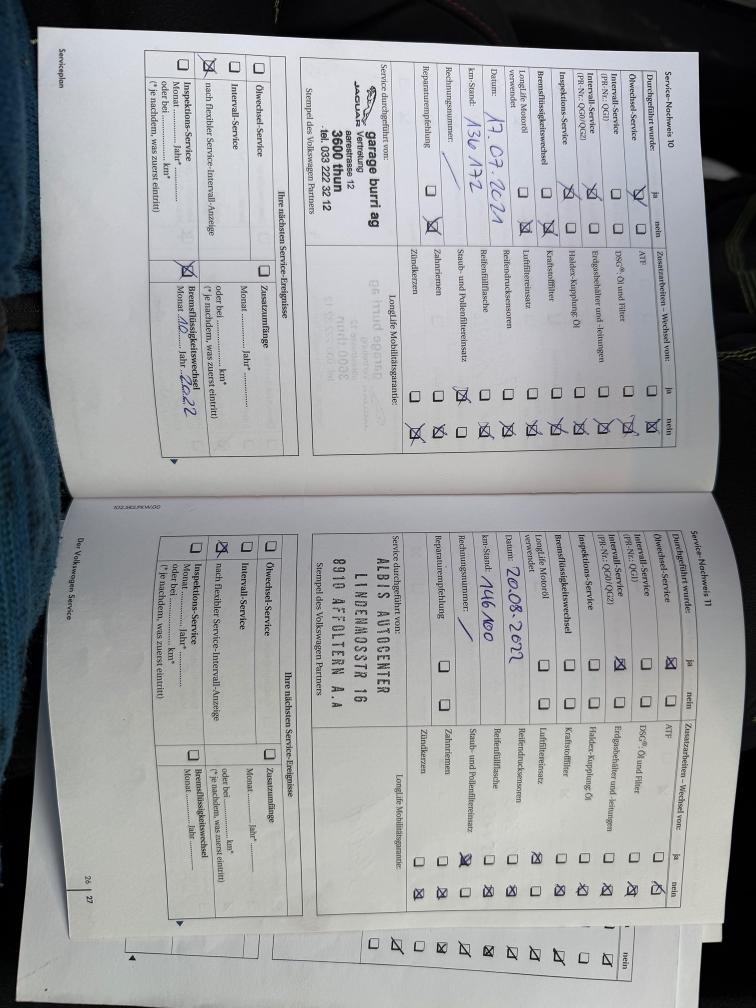 Service-Nachweis 10
Durchgeführt wurde: ja nein
Ölwechsel-Service
Intervall-Service
(PR-Nr.: QG1)
Intervall-Service
(PR-Nr.: QG0/QG2)
Inspektions-Service
Bremsflüssigkeitswechsel
LongLife Motoröl
verwendet
Datum: 17.07.2021
km-Stand: 136172
Rechnungsnummer:
Reparaturempfehlung
Zusatzarbeiten – Wechsel von: ja nein
ATF
DSG®: Öl und Filter
Erdgasbehälter und -leitungen
Haldex-Kupplung: Öl
Kraftstofffilter
Luftfiltereinsatz
Reifendrucksensoren
Reifenfüllflasche
Staub- und Pollenfiltereinsatz
Zahnriemen
Zündkerzen
Service durchgeführt von:
JAGUAR
garage burri ag
Vertretung
aarestrasse 12
3600 thun
tel. 033 222 32 12
Stempel des Volkswagen Partners
LongLife Mobilitätsgarantie:
Ihre nächsten Service-Ereignisse
Ölwechsel-Service
Intervall-Service
nach flexibler Service-Intervall-Anzeige
Inspektions-Service
Monat ............ Jahr* ............
oder bei ............ km*
(* je nachdem, was zuerst eintritt)
Zusatzumfänge
Monat ............ Jahr* ............
oder bei ............ km*
(* je nachdem, was zuerst eintritt)
Bremsflüssigkeitswechsel
Monat 10 Jahr 2022
Serviceplan
Service-Nachweis 11
Durchgeführt wurde: ja nein
Ölwechsel-Service
Intervall-Service
(PR-Nr.: QG1)
Intervall-Service
(PR-Nr.: QG0/QG2)
Inspektions-Service
Bremsflüssigkeitswechsel
LongLife Motoröl
verwendet
Datum: 20.08.2022
km-Stand: 146100
Rechnungsnummer:
Reparaturempfehlung
Zusatzarbeiten – Wechsel von: ja nein
ATF
DSG®: Öl und Filter
Erdgasbehälter und -leitungen
Haldex-Kupplung: Öl
Kraftstofffilter
Luftfiltereinsatz
Reifendrucksensoren
Reifenfüllflasche
Staub- und Pollenfiltereinsatz
Zahnriemen
Zündkerzen
Service durchgeführt von:
ALBIS AUTOCENTER
LINDENMOSSTR 16
8910 AFFOLTERN A.A
Stempel des Volkswagen Partners
LongLife Mobilitätsgarantie:
Ihre nächsten Service-Ereignisse
Ölwechsel-Service
Intervall-Service
nach flexibler Service-Intervall-Anzeige
Inspektions-Service
Monat ............ Jahr* ............
oder bei ............ km*
(* je nachdem, was zuerst eintritt)
Zusatzumfänge
Monat ............ Jahr* ............
oder bei ............ km*
(* je nachdem, was zuerst eintritt)
Bremsflüssigkeitswechsel
Monat ............ Jahr ............
Der Volkswagen Service
26 | 27
nein